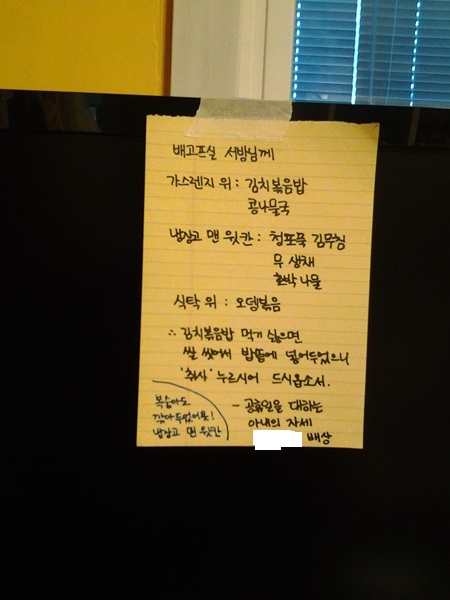 배고프실 서방님께
가스렌지 위 : 김치볶음밥
콩나물국
냉장고 맨 윗칸 : 청포묵 김무침
무 생채
호박 나물
식탁 위 : 오뎅볶음
∴ 김치볶음밥 먹기 싫으면
쌀 씻어서 밥솥에 넣어두었으니
'취사' 누르시어 드시옵소서.
- 공휴일을 대하는
아내의 자세
배상
복숭아도
깎아두었어욧!
냉장고 맨 윗칸